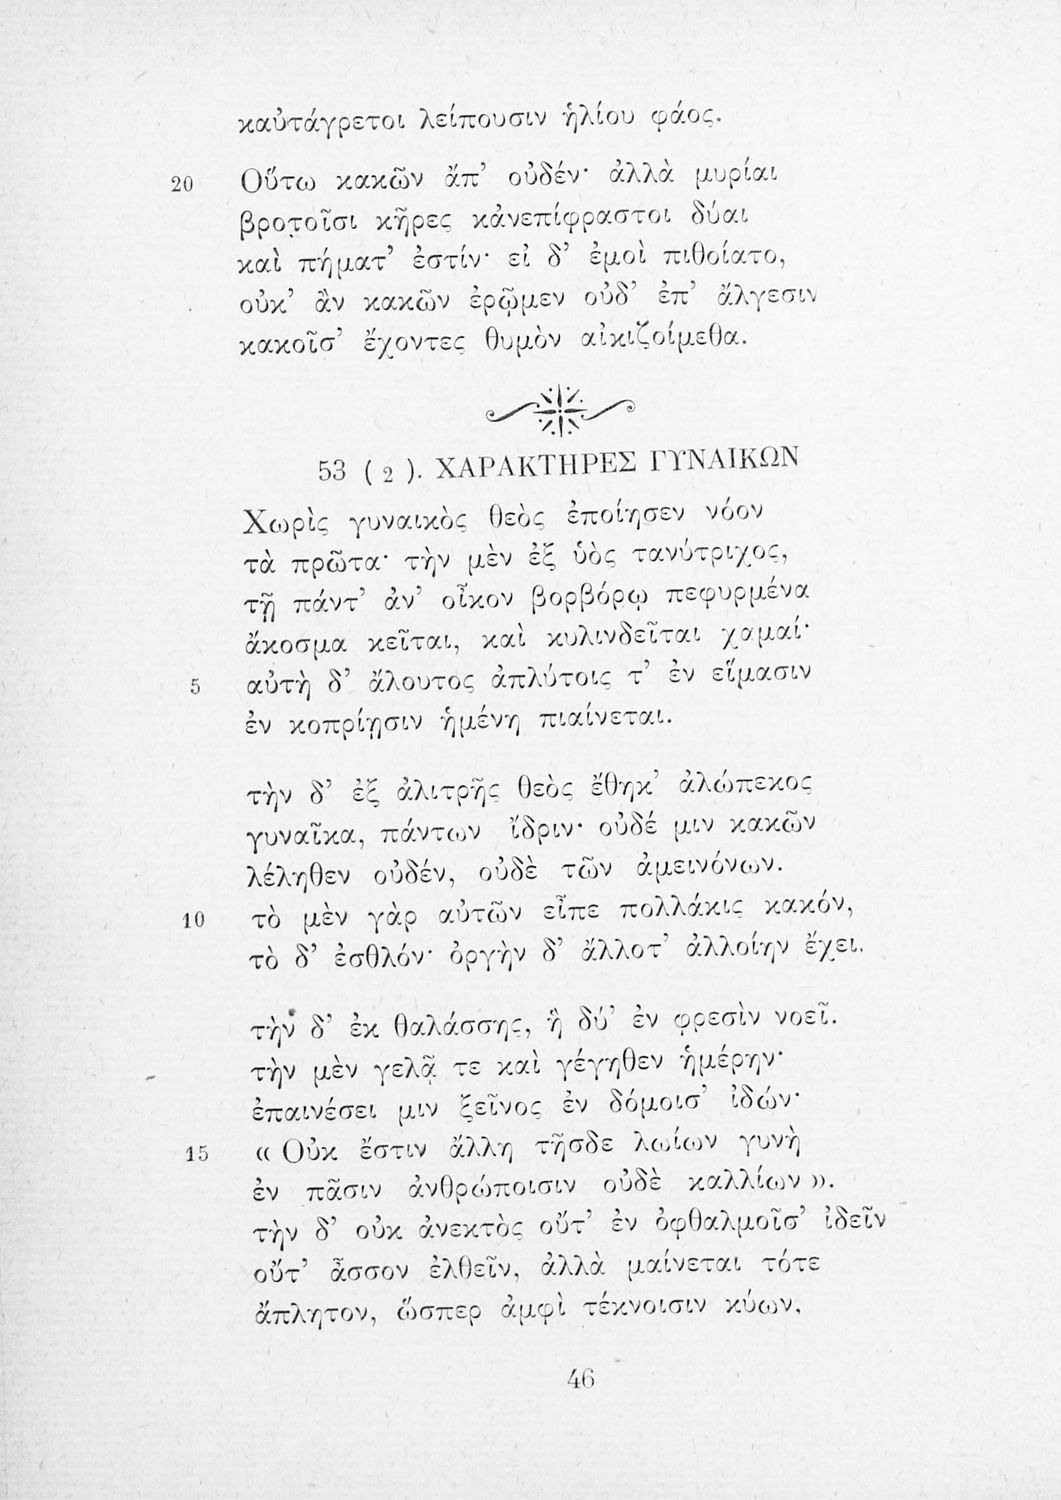 καὐτάγρετοι λείπουσιν ἡλίου φάος.
20 Οὕτω κακῶν ἄπ’ οὐδέν· ἀλλὰ μυρίαι
βροτοῖσι κῆρες κἀνεπίφραστοι δύαι
καὶ πήματ’ ἐστίν· εἰ δ’ ἐμοὶ πιθοίατο,
οὐκ’ ἂν κακῶν ἐρῷμεν οὐδ’ ἐπ’ ἄλγεσιν
κακοῖσ’ ἔχοντες θυμὸν αἰκιζοίμεθα.
53 ( 2 ). ΧΑΡΑΚΤΗΡΕΣ ΓΥΝΑΙΚΩΝ
Χωρὶς γυναικὸς θεὸς ἐποίησεν νόον
τὰ πρῶτα· τὴν μὲν ἐξ ὑὸς τανύτριχος,
τῇ πάντ’ ἀν’ οἶκον βορβόρῳ πεφυρμένα
ἄκοσμα κεῖται, καὶ κυλινδεῖται χαμαί·
5 αὐτὴ δ’ ἄλουτος ἀπλύτοις τ’ ἐν εἵμασιν
ἐν κοπρίῃσιν ἡμένη πιαίνεται.
τὴν δ’ ἐξ ἀλιτρῆς θεὸς ἔθηκ’ ἀλώπεκος
γυναῖκα, πάντων ἴδριν· οὐδέ μιν κακῶν
λέληθεν οὐδέν, οὐδὲ τῶν ἀμεινόνων.
10 τὸ μὲν γὰρ αὐτῶν εἶπε πολλάκις κακόν,
τὸ δ’ ἐσθλόν· ὀργὴν δ’ ἄλλοτ’ ἀλλοίην ἔχει.
τὴν δ’ ἐκ θαλάσσης, ἣ δύ’ ἐν φρεσὶν νοεῖ.
τὴν μὲν γελᾷ τε καὶ γέγηθεν ἡμέρην·
ἐπαινέσει μιν ξεῖνος ἐν δόμοισ’ ἰδών·
15 « Οὐκ ἔστιν ἄλλη τῆσδε λωίων γυνὴ
ἐν πᾶσιν ἀνθρώποισιν οὐδὲ καλλίων ».
τὴν δ’ οὐκ ἀνεκτὸς οὔτ’ ἐν ὀφθαλμοῖσ’ ἰδεῖν
οὔτ’ ἆσσον ἐλθεῖν, ἀλλὰ μαίνεται τότε
ἄπλητον, ὥσπερ ἀμφὶ τέκνοισιν κύων,
46